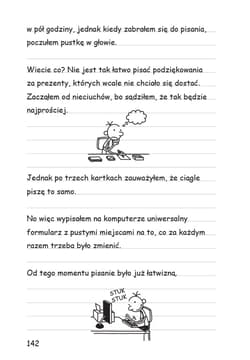 w pół godziny, jednak kiedy zabrałem się do pisania,
poczułem pustkę w głowie.
Wiecie co? Nie jest tak łatwo pisać podziękowania
za prezenty, których wcale nie chciało się dostać.
Zacząłem od nieciuchów, bo sądziłem, że tak będzie
najprościej.
Jednak po trzech kartkach zauważyłem, że ciągle
piszę to samo.
No więc wypisałem na komputerze uniwersalny
formularz z pustymi miejscami na to, co za każdym
razem trzeba było zmienić.
Od tego momentu pisanie było już łatwizną,
STUK
STUK
142